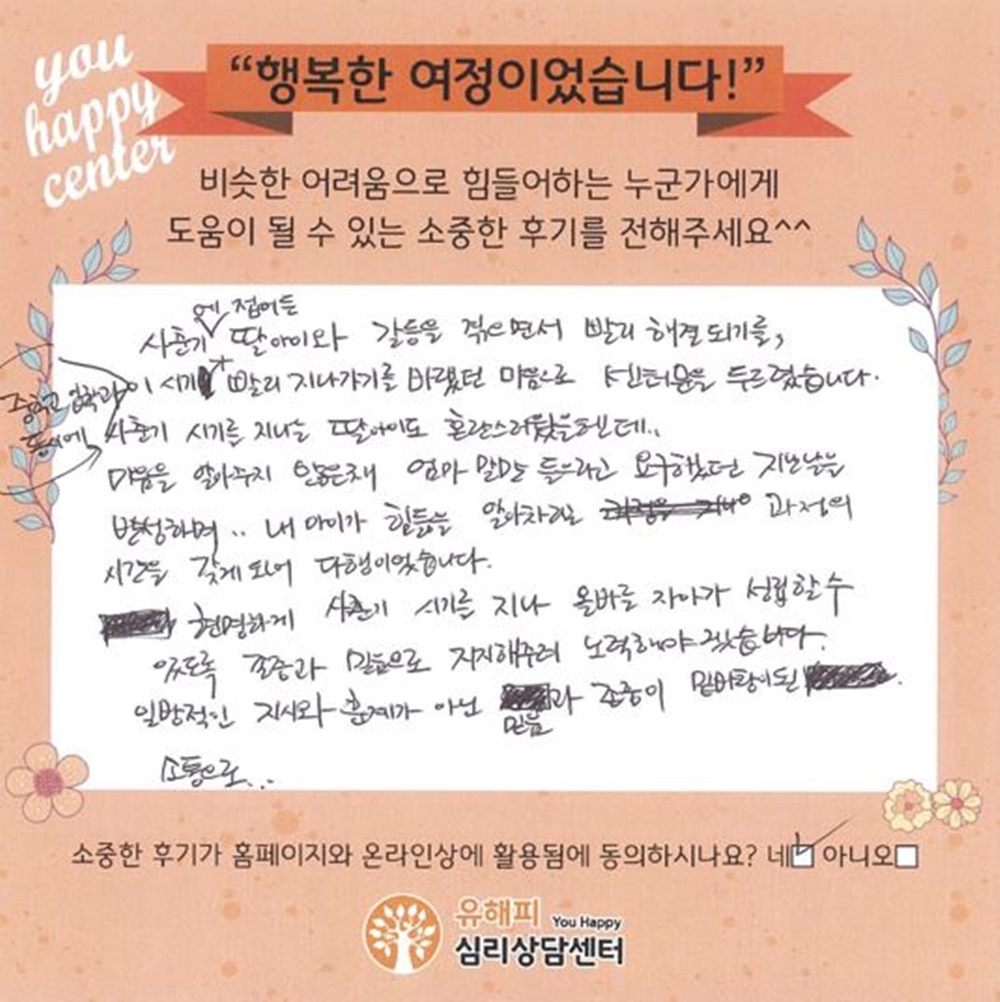 you
happy
center
“행복한 여정이었습니다!”
비슷한 어려움으로 힘들어하는 누군가에게
도움이 될 수 있는 소중한 후기를 전해주세요^^
에 접어든
사춘기 딸아이와 갈등을 겪으면서 빨리 해결되기를,
중학교 입학과 이 시기 빨리 지나가기를 바랬던 마음으로 센터문을 두드렸습니다.
동시에 사춘기 시기를 지나는 딸아이도 혼란스러웠을텐데..
마음을 알아주지 않은채 엄마 말만 들으라고 요구했던 지난날을
반성하며.. 내 아이가 힘듦을 알아차리는 과정의
시간을 갖게 되어 다행이었습니다.
현명하게 사춘기 시기를 지나 올바른 자아가 성립할 수
있도록 존중과 믿음으로 지지해주려 노력해야겠습니다.
일방적인 지시와 훈계가 아닌 과 존중이 밑바탕이 된
믿음
소통으로...
소중한 후기가 홈페이지와 온라인상에 활용됨에 동의하시나요? 네 아니오
유해피 You Happy
심리상담센터